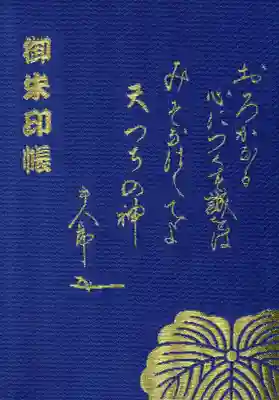 おろかなる
心につくす誠をば
みそなはしてよ
天つちの神
御朱印帳